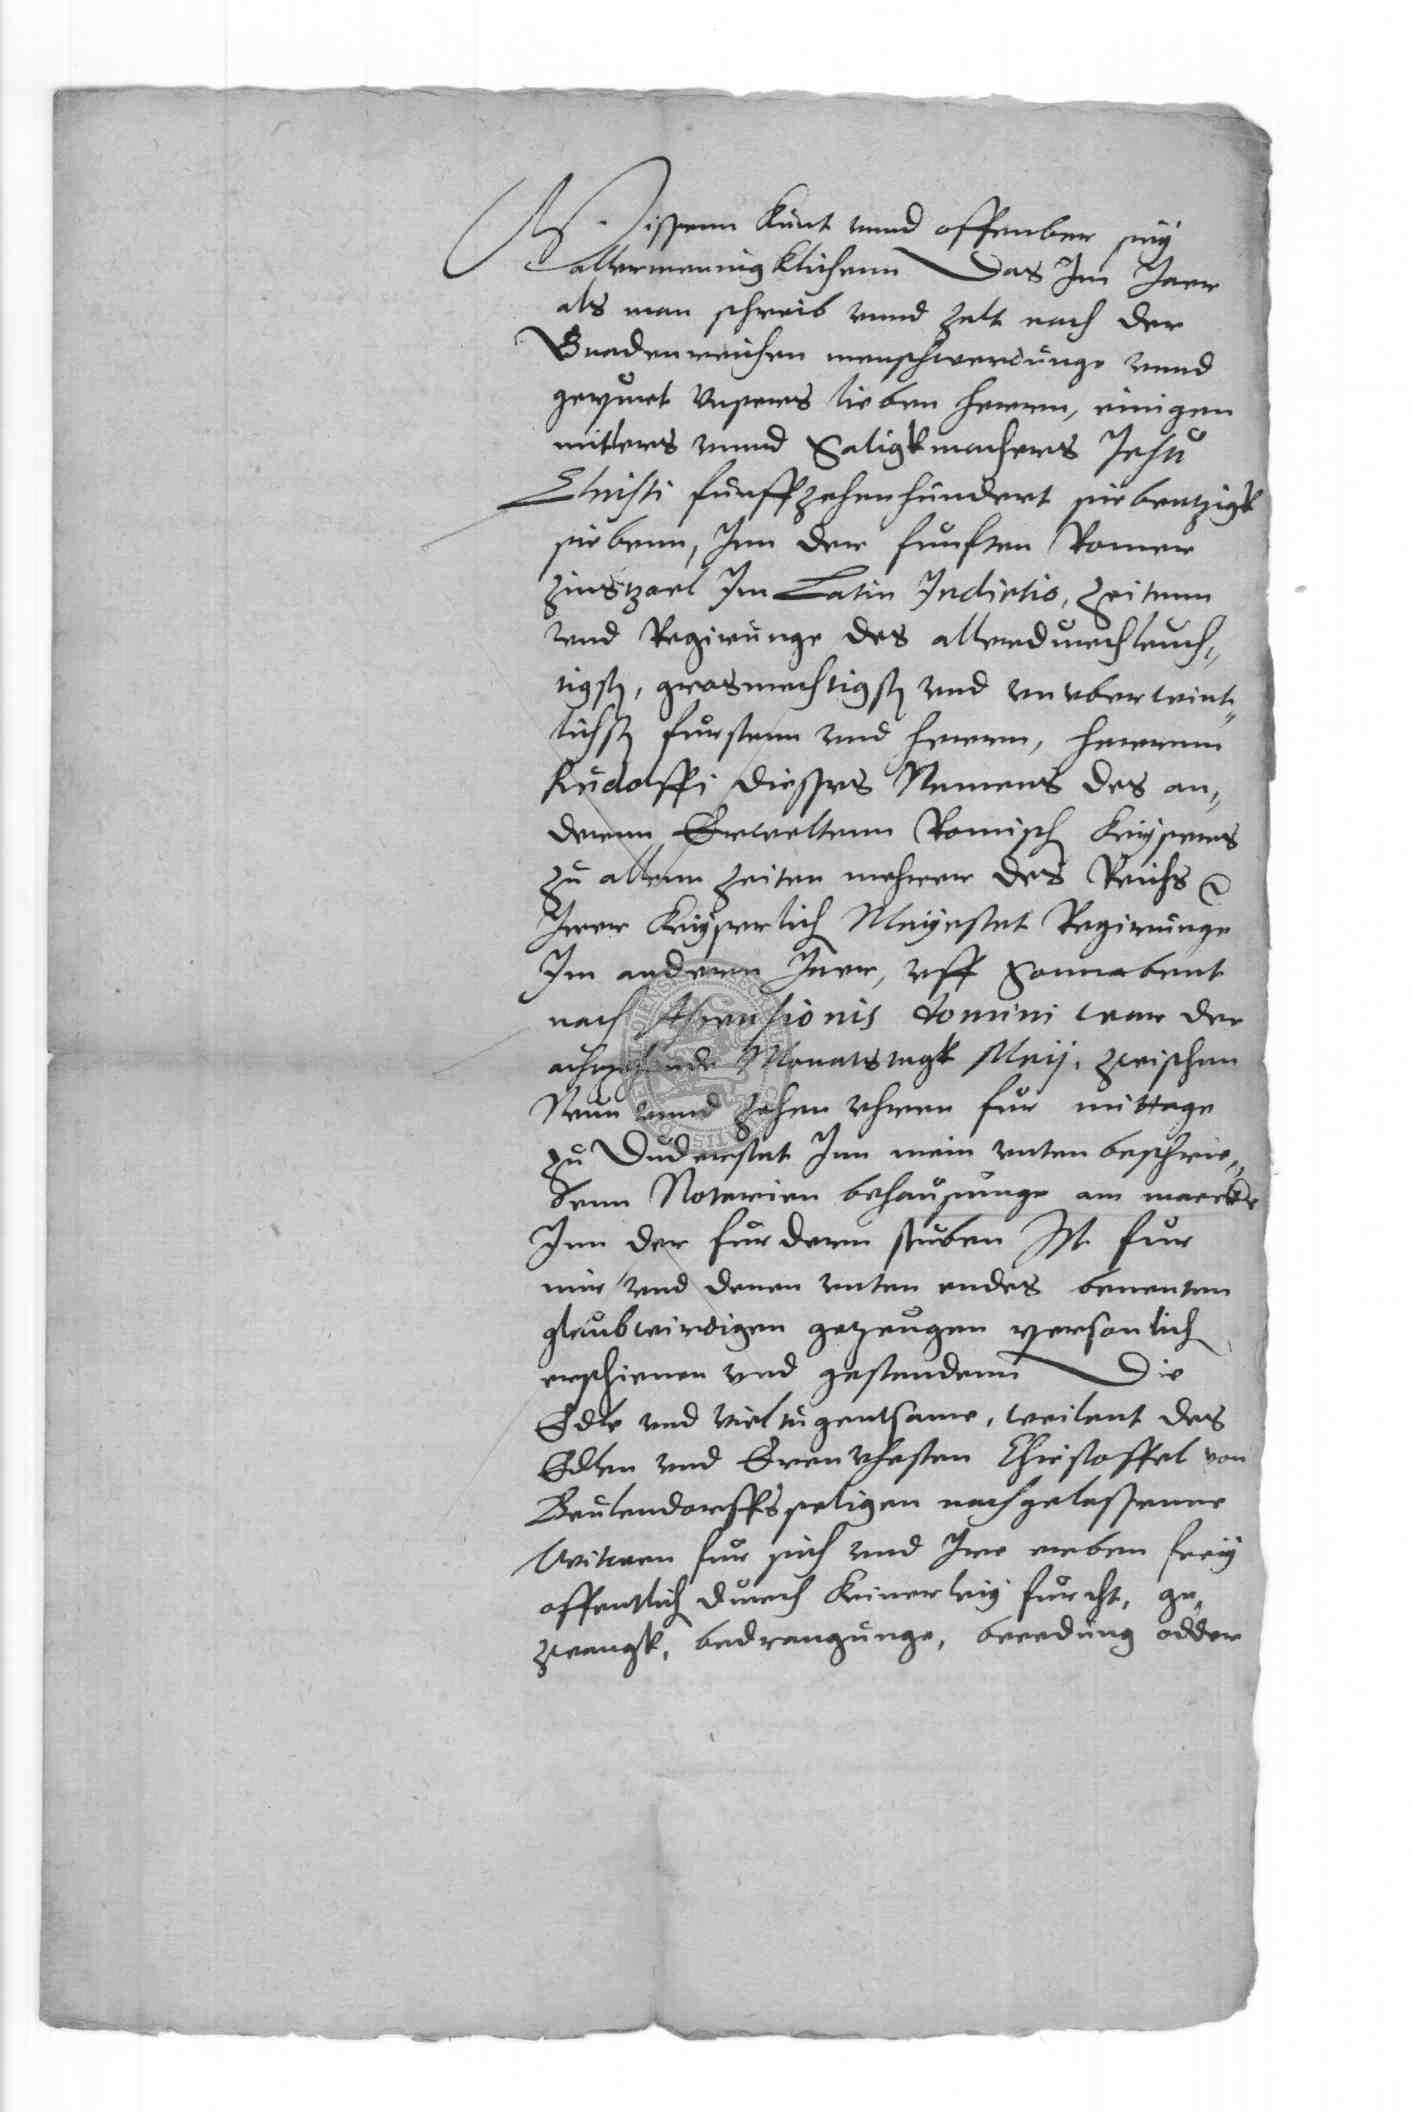 Wissenn kunt vnnd offenber seij
allermennigklichenn Das Im Jaer
als man schreib vnnd zalt nach der
Gnadenreichen menschwerdunge vnnd
gepurt Vnsers lieben herrn, einigen
mitlers vnnd Saligkmachers Jesu
Christi funffzehenhundert siebentzigk
siebenn, Inn der funften Romer
Zinszael Im Latin Indictio, Zeitenn
vnd Regirunge des allerdurchleuch„
tigst, grosmechtigst vnd vnuberwint„
lichst furstenn vnd herrn, herrnn
Rudolffi dieses Namens des an„
derenn Erweltenn Romisch Keysers
zu allenn Zeiten mehrer des Reichs
Irer Keyserlich Mayestat Regirunge
Im anderen Jaer, vff Sonnabent
nach Ascensionis domini war der
achtzehende Monatstagk Maij, zwischen
Neun vnnd Zehen vhren fur mittage
zu Duderstat Inn mein unten beschrie„
benn Notarien behausunge am marckte
Inn der fordern stuben Ist fur
mir vnd denen vnten endes benenten
glaubwirdigen gezeugen personlich
erschienen vnd gestandenn Die
Edle vnd vieltugentsame, weilant des
Edlen vnd Erenvhesten Christoffel von
Beulendorffs seligen nachgelassenne
Witwen fur sich vnd Ire erben freij
offentlich durch keinerleij furcht, ge„
zwangk, bedrangunge, beredung odder